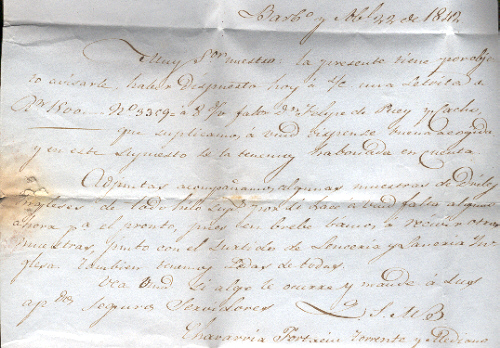 Barb.º y Abl 22 de 1842.
Muy S.or nuestro: la presente tiene por obje
to avisarle haber dispuesto hoy á S/c una letrita de
R.s 1800.— Nº 3359 á 8 d/v favor D.n Felipe de Puey y
que suplicamos á vmd dispense buena acogida
y en este supuesto se la tenemos abonada en cuenta
Adjuntas acompañamos algunas muestras de Driles
Ingleses de todo hilo por si hacen á vmd falta algunos
ahora p.a el pronto, pues en brebe bamos á recivir otras
muestras, junto con el surtido de Lenceria y Laneria In
glesa tambien tenemos de todas.
Vea Vmd si algo le ocurre y mande á sus
ap.dos Seguros Servidores
Q. S. M. B.
Chavarria Torrente y Mediano